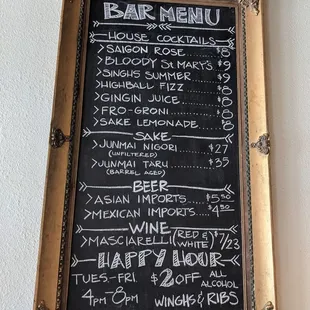 BAR MENU
HOUSE COCKTAILS
>SAIGON ROSE........$8
>BLOODY ST MARY'S..$9
>SINGHS SUMMER.....$9
>HIGHBALL FIZZ......$8
>GINGIN JUICE.......$8
>FRO-GRONI.........$8
>SAKE LEMONADE.....$8
SAKE
>JUNMAI NIGORI......$27
(UNFILTERED)
>JUNMAI TARU.......$35
(BARREL AGED)
BEER
>ASIAN IMPORTS....$5.50
>MEXICAN IMPORTS....$4.50
WINE
>MASCIARELLI (RED & WHITE) $7/23
HAPPY HOUR
TUES.-FRI. $2 OFF ALL ALCOHOL
4PM-8PM WINGHS & RIBS